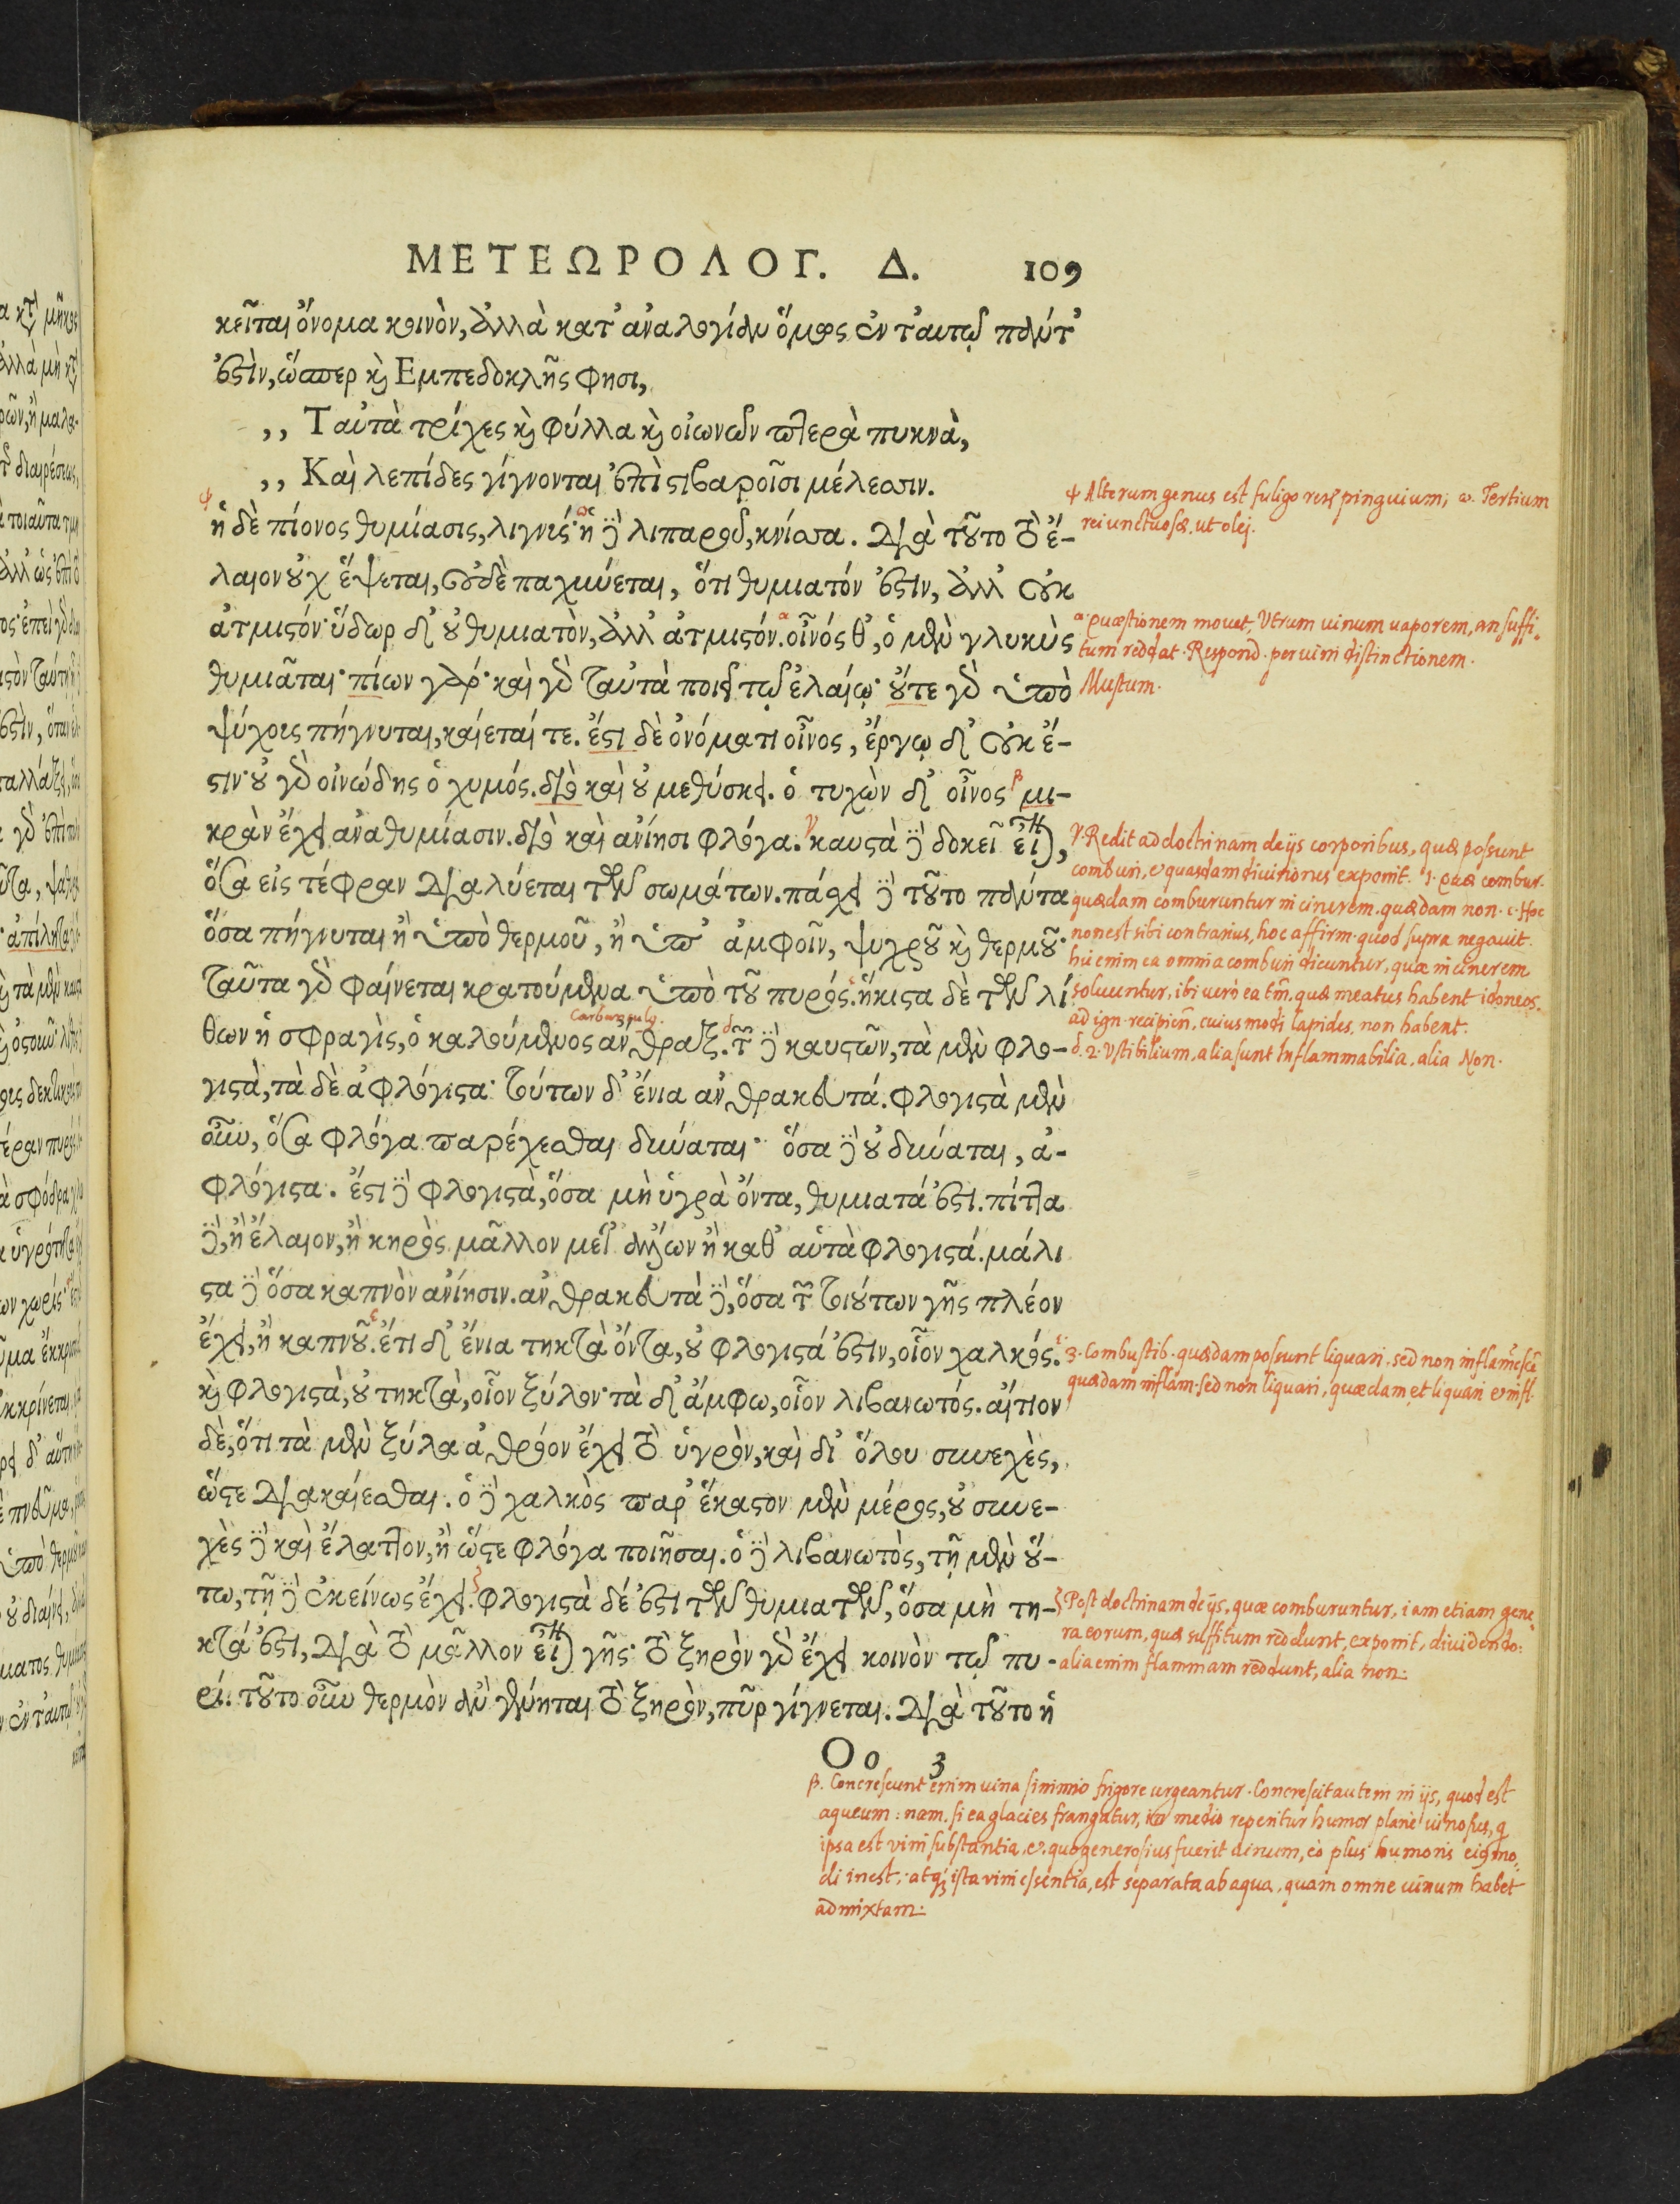 ΜΕΤΕΩΡΟΛΟΓ. Δ. 109
κεῖται ὄνομα κοινὸν, ἀλλὰ κατ' ἀναλογίαν ὅμως ἐν τ' αυτῷ πάντ'
ἐστὶν, ὥσπερ καὶ Εμπεδοκλῆς φησι,
,, Ταὐτὰ τρίχες καὶ φύλλα καὶ οἰωνῶν πτερὰ πυκνὰ,
,, Καὶ λεπίδες γίγνονται ἐπὶ στιβαροῖσι μέλεσσιν.
ἡ δὲ πίονος θυμίασις, λιγνύς· ἡ δὲ λιπαροῦ, κνίσσα. Διὰ τοῦτο τὸ ἔ-
λαιον οὐχ ἕψεται, οὐδὲ παχύνεται, ὅτι θυμιατόν ἐστιν, ἀλλ' οὐκ
ἀτμιστόν· ὕδωρ δ' οὐ θυμιατὸν, ἀλλ' ἀτμιστόν. οἶνός θ', ὁ μὲν γλυκὺς
θυμιᾶται· πίων γάρ· καὶ γὰρ ταὐτὰ ποιεῖ τῷ ἐλαίῳ· οὔτε γὰρ ὑπὸ
ψύχους πήγνυται, καίεταί τε. ἔστι δὲ ὀνόματι οἶνος, ἔργῳ δ' οὐκ ἔ-
στιν· οὐ γὰρ οἰνώδης ὁ χυμός. διὸ καὶ οὐ μεθύσκει. ὁ τυχὼν δ' οἶνος μι-
κρὰν ἔχει ἀναθυμίασιν. διὸ καὶ ἀνίησι φλόγα. καυστὰ δὲ δοκεῖ εἶναι,
ὅσα εἰς τέφραν διαλύεται τῶν σωμάτων. πάσχει δὲ τοῦτο πάντα
ὅσα πήγνυται ἢ ὑπὸ θερμοῦ, ἢ ὑπ' ἀμφοῖν, ψυχροῦ καὶ θερμοῦ·
ταῦτα γὰρ φαίνεται κρατούμενα ὑπὸ τοῦ πυρός. ἥκιστα δὲ τῶν λί
Carbunculg.
θων ἡ σφραγὶς, ὁ καλούμενος ἄνθραξ. τῶν δὲ καυστῶν, τὰ μὲν φλο-
γιστὰ, τὰ δὲ ἀφλόγιστα· τούτων δ' ἔνια ἀνθρακευτά. φλογιστὰ μὲν
οὖν, ὅσα φλόγα παρέχεσθαι δύναται· ὅσα δὲ οὐ δύναται, ἀ-
φλόγιστα. ἔστι δὲ φλογιστὰ, ὅσα μὴ ὑγρὰ ὄντα, θυμιατά ἐστι. πίττα
δὲ, ἢ ἔλαιον, ἢ κηρὸς μᾶλλον μετ' ἄλλων ἢ καθ' αὑτὰ φλογιστά. μάλι
στα δὲ ὅσα καπνὸν ἀνίησιν. ἀνθρακευτὰ δὲ, ὅσα τῶν τοιούτων γῆς πλέον
ἔχει, ἢ καπνοῦ. ἔτι δ' ἔνια τηκτὰ ὄντα, οὐ φλογιστά ἐστιν, οἷον χαλκός.
καὶ φλογιστὰ, οὐ τηκτὰ, οἷον ξύλον· τὰ δ' ἄμφω, οἷον λιβανωτός. αἴτιον
δὲ, ὅτι τὰ μὲν ξύλα ἀθρόον ἔχει τὸ ὑγρὸν, καὶ δι' ὅλου συνεχὲς,
ὥστε διακαίεσθαι. ὁ δὲ χαλκὸς παρ' ἕκαστον μὲν μέρος, οὐ συνε-
χὲς δὲ καὶ ἔλαττον, ἢ ὥστε φλόγα ποιῆσαι. ὁ δὲ λιβανωτὸς, τῇ μὲν οὕ-
τω, τῇ δὲ ἐκείνως ἔχει. φλογιστὰ δέ ἐστι τῶν θυμιατῶν, ὅσα μὴ τη-
κτά ἐστι, διὰ τὸ μᾶλλον εἶναι γῆς· τὸ ξηρὸν γὰρ ἔχει κοινὸν τῷ πυ-
ρί. τοῦτο οὖν θερμὸν ἂν γένηται τὸ ξηρὸν, πῦρ γίγνεται. Διὰ τοῦτο ἡ
Oo 3
ψ Alterum genus est fuligo pinguium; ω. Tertium
rei unctuosæ, ut olej.
α quæstionem movet, Vtrum uinum uaporem, an suffi-
tum reddat. Respond. per uini distinctionem.
Mustum.
γ. Redit ad doctrinam de ijs corporibus, quæ possunt
comburi, & quasdam diuisiones exponit. 1. quæ combur.
quædam comburuntur in cinerem, quædam non. c. Hoc
non est sibi contrarius, hoc affirm. quod supra negauit.
hic enim ea omnia comburi dicuntur, quæ in cinerem
soluuntur, ibi uero ea tm̄, quæ meatus habent idoneos
ad ign. recipien̄, cuiusmodi lapides, non habent.
d. 2. Vstibilium, alia sunt Inflammabilia, alia Non.
ε 3. Combustib. quædam possunt liquari, sed non
quædam inflam. sed non liquari, quædam et liquari & infl.
ζ Post doctrinam de ijs, quæ comburuntur, iam etiam gene
ra eorum, quæ suffitum reddunt, exponit, diuidendo:
alia enim flammam reddunt, alia non.
β. Concrescunt enim uina si nimio frigore urgeantur. Concrescit autem in ijs, quod est
aqueum: nam. si ea glacies frangatur, in medio reperitur humor plane uinosus, q
ipsa est vini substantia, & quo generosius fuerit uinum, eo plus humoris
di inest: atq; ista vini essentia, est separata ab aqua, quam omne uinum habet
admixtam.